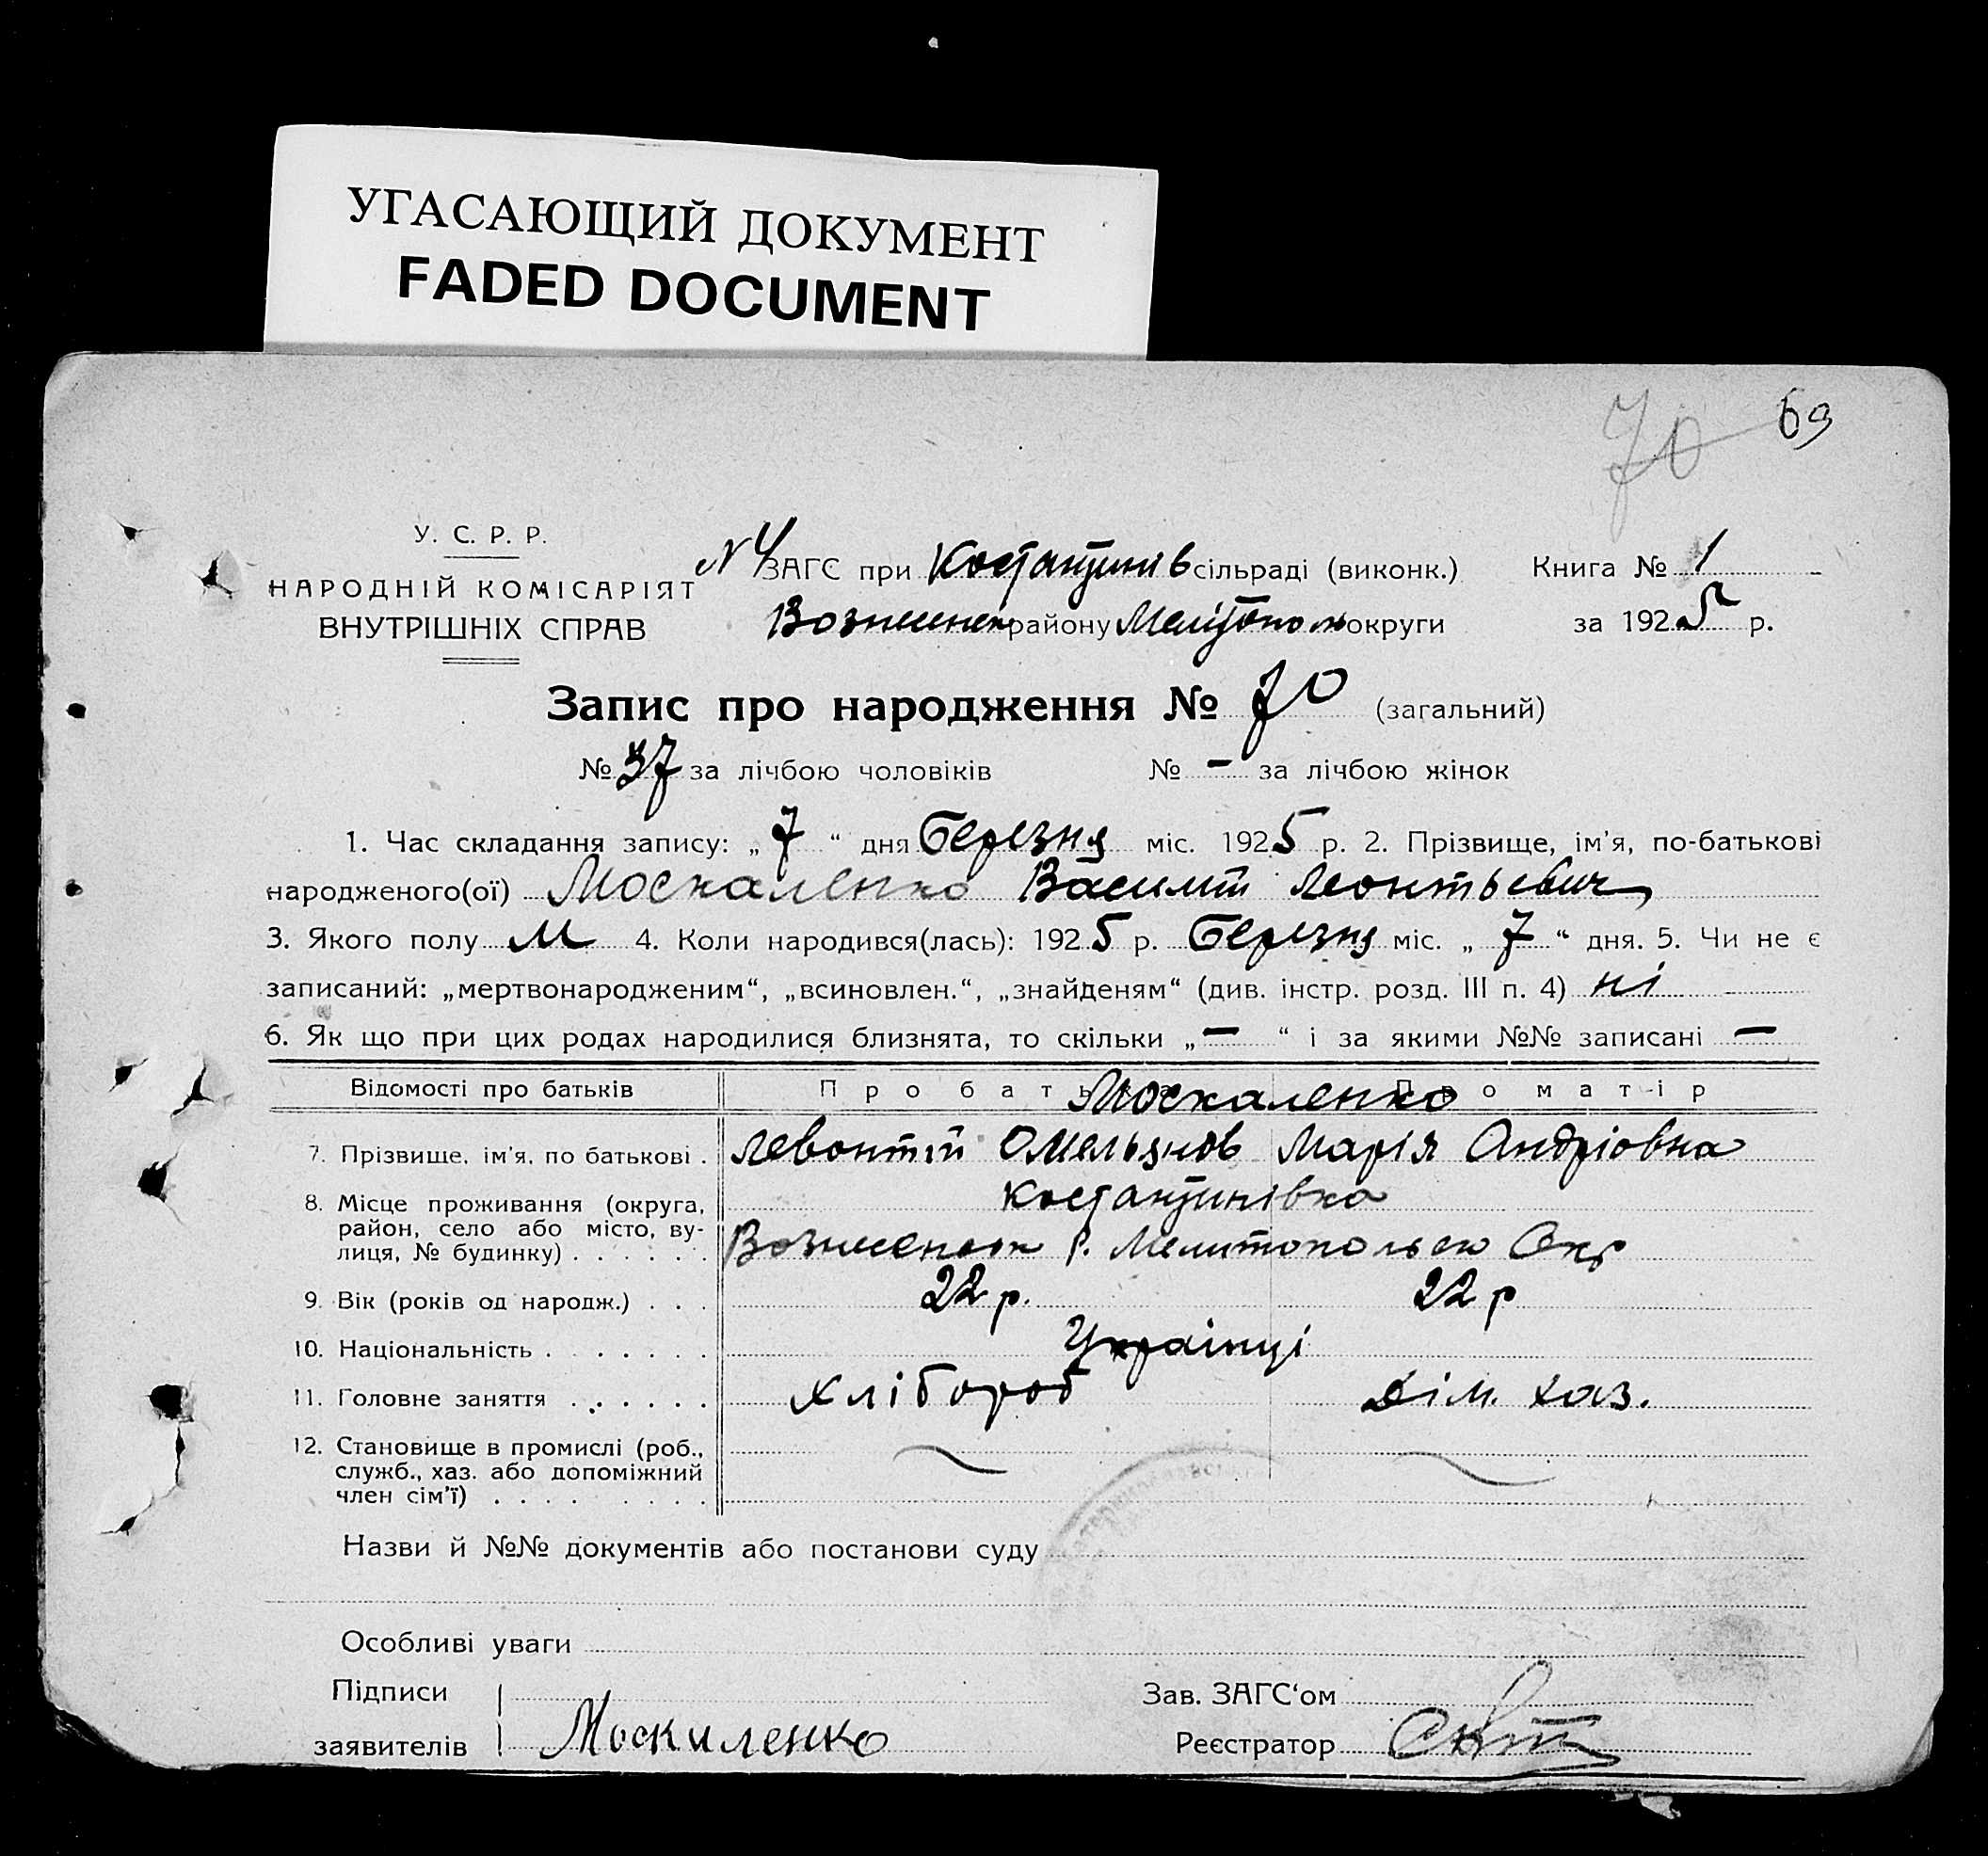 УГАСАЮЩИЙ ДОКУМЕНТ
FADED DOCUMENT
70 69
У. С. Р. Р.
НАРОДНІЙ КОМІСАРІЯТ
ВНУТРІШНІХ СПРАВ
N 4 ЗАГС при Костантинів сільраді (виконк.) Книга № 1
Вознесенск району Мелітополь округи за 1925 р.
Запис про народження № 70 (загальний)
№ 37 за лічбою чоловіків № – за лічбою жінок
1. Час складання запису: „ 7 “ дня Березня міс. 1925 р. 2. Прізвище, ім'я, по-батькові
народженого(ої) Москаленко Василій Леонтьевич
3. Якого полу М 4. Коли народився(лась): 1925 р. Березня міс. „ 7 “ дня. 5. Чи не є
записаний: „мертвонародженим“, „всиновлен.“, „знайденям“ (див. інстр. розд. III п. 4) ні
6. Як що при цих родах народилися близнята, то скільки „ – “ і за якими №№ записані –
Відомості про батьків Про батька Про матір
Москаленко
7. Прізвище, ім'я, по батькові . Левонтій Омельянов Марія Андріовна
8. Місце проживання (округа, Костантинівка
район, село або місто, ву-
лиця, № будинку) . . . . . . Вознесенск р. Мелитопольск Окр
9. Вік (років од народж.) . . . 22 р. 22 р
10. Національність . . . . . . . Українці
11. Головне заняття . . . . . . Хлібороб Дім. хаз.
12. Становище в промислі (роб.,
служб., хаз. або допоміжний
член сім'ї) . . . . . . . .
Назви й №№ документів або постанови суду
Особливі уваги
Підписи Зав. ЗАГС'ом
заявителів Москиленко Реєстратор